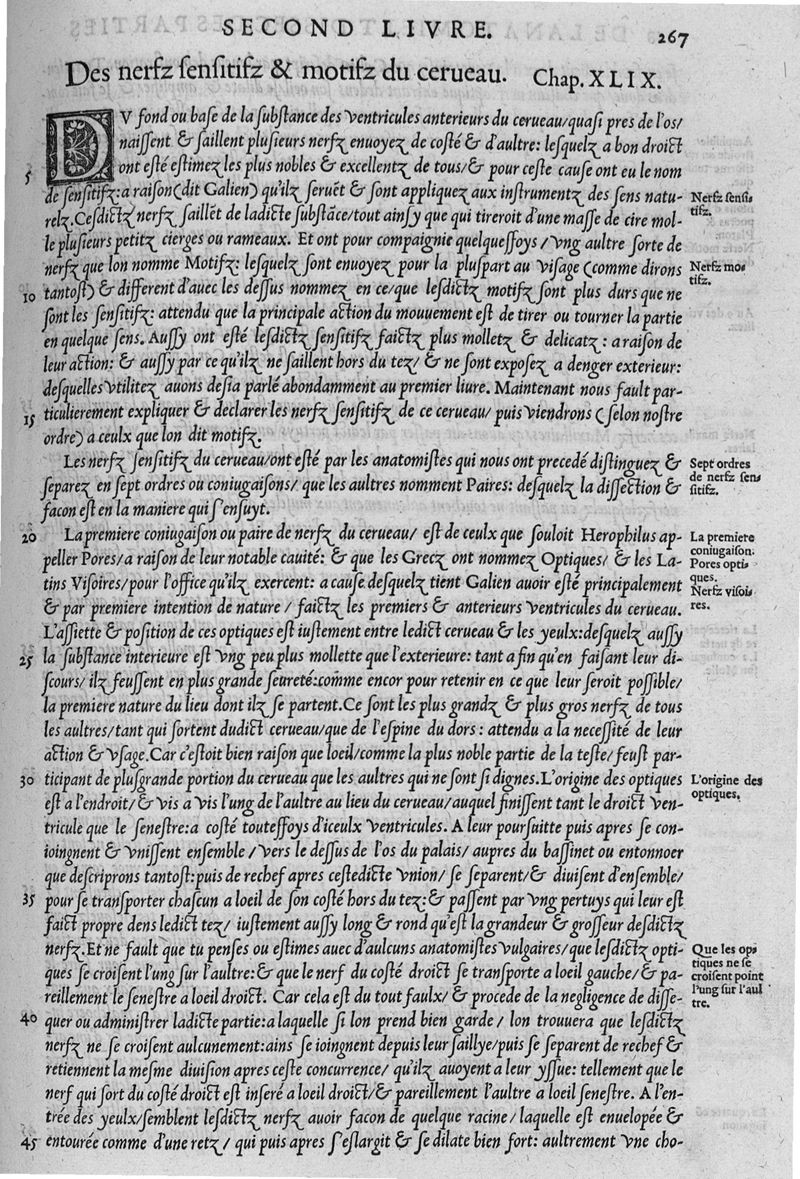 SECOND LIVRE.
267
Des nerfz sensitifz & motifz du cerueau. Chap. XLIX.
DV fond ou base de la substance des ventricules anterieurs du cerueau/quasi pres de l'os/
naissent & saillent plusieurs nerfz enuoyez de costé & d'aultre: lesquelz a bon droict
5 ont esté estimez les plus nobles & excellentz de tous/& pour ceste cause ont eu le nom
de sensitifz: a raison (dit Galien) qu'ilz seruēt & sont appliquez aux instrumentz des sens natu-
Nerfz sensi-
tifz.
relz. Cesdictz nerfz saillēt de ladicte substāce/tout ainsy que qui tireroit d'une masse de cire mol-
le plusieurs petitz cierges ou rameaux. Et ont pour compaignie quelquessoys/vng aultre sorte de
nerfz que lon nomme Motifz: lesquelz sont enuoyez pour la pluspart au visage (comme dirons
Nerfz mo-
tifz.
10 tantost) & different d'auec les dessus nommez en ce/que lesdictz motifz sont plus durs que ne
sont les sensitifz: attendu que la principale action du mouuement est de tirer ou tourner la partie
en quelque sens. Aussy ont esté lesdictz sensitifz faictz plus molletz & delicatz: a raison de
leur action: & aussy par ce qu'ilz ne saillent hors du tez/ & ne sont exposez a denger exterieur:
desquelles vtilitez auons desia parlé abondamment au premier liure. Maintenant nous fault par-
15 ticulierement expliquer & declarer les nerfz sensitifz de ce cerueau/ puis viendrons (selon nostre
ordre) a ceulx que lon dit motifz.
Les nerfz sensitifz du cerueau/ont esté par les anatomistes qui nous ont precedé distinguez &
Sept ordres
de nerfz sen-
sitifz.
separez en sept ordres ou coniugaisons/ que les aultres nomment Paires: desquelz la dissection &
facon est en la maniere qui s'ensuyt.
20 La premiere coniugaison ou paire de nerfz du cerueau/ est de ceulx que souloit Herophilus ap-
La premiere
coniugaison.
Pores opti-
ques.
Nerfz visoi-
res.
peller Pores/a raison de leur notable cauité: & que les Grecz ont nommez Optiques/ & les La-
tins Visoires/pour l'office qu'ilz exercent: a cause desquelz tient Galien auoir esté principalement
& par premiere intention de nature / faictz les premiers & anterieurs ventricules du cerueau.
L'assiette & position de ces optiques est iustement entre ledict cerueau & les yeulx: desquelz aussy
25 la substance interieure est vng peu plus mollette que l'exterieure: tant a fin qu'en faisant leur di-
scours/ ilz feussent en plus grande seureté: comme encor pour retenir en ce que leur seroit possible/
la premiere nature du lieu dont ilz se partent. Ce sont les plus grandz & plus gros nerfz de tous
les aultres/tant qui sortent dudict cerueau/que de l'espine du dors: attendu a la necessité de leur
action & vsage. Car c'estoit bien raison que loeil/comme la plus noble partie de la teste/feust par-
30 ticipant de plusgrande portion du cerueau que les aultres qui ne sont si dignes. L'origine des optiques
L'origine des
optiques.
est a l'endroit/& vis a vis l'ung de l'aultre au lieu du cerueau/auquel finissent tant le droict ven-
tricule que le senestre: a costé touteffoys d'iceulx ventricules. A leur poursuitte puis apres se con-
ioingnent & vnissent ensemble / vers le dessus de l'os du palais/ aupres du bassinet ou entonnoer
que descriprons tantost: puis de rechef apres cestedicte vnion/ se separent/& diuisent d'ensemble/
35 pour se transporter chascun a loeil de son costé hors du tez: & passent par vng pertuys qui leur est
faict propre dens ledict tez/ iustement aussy long & rond qu'est la grandeur & grosseur desdictz
nerfz. Et ne fault que tu penses ou estimes auec d'aulcuns anatomistes vulgaires/que lesdictz opti-
Que les op-
tiques ne se
croisent point
l'ung sur l'aul
tre.
ques se croisent l'ung sur l'aultre: & que le nerf du costé droict se transporte a loeil gauche/& pa-
reillement le senestre a loeil droict. Car cela est du tout faulx/& procede de la negligence de disse-
40 quer ou administrer ladicte partie: a laquelle si lon prend bien garde / lon trouuera que lesdictz
nerfz ne se croisent aulcunement: ains se ioingnent depuis leur saillye/puis se separent de rechef &
retiennent la mesme diuision apres ceste concurrence/ qu'ilz auoyent a leur yssue: tellement que le
nerf qui sort du costé droict est inseré a loeil droict/& pareillement l'aultre a loeil senestre. A l'en-
trée des yeulx/semblent lesdictz nerfz auoir facon de quelque racine/ laquelle est enuelopée &
45 entourée comme d'une retz/ qui puis apres s'eslargit & se dilate bien fort: aultrement vne cho-